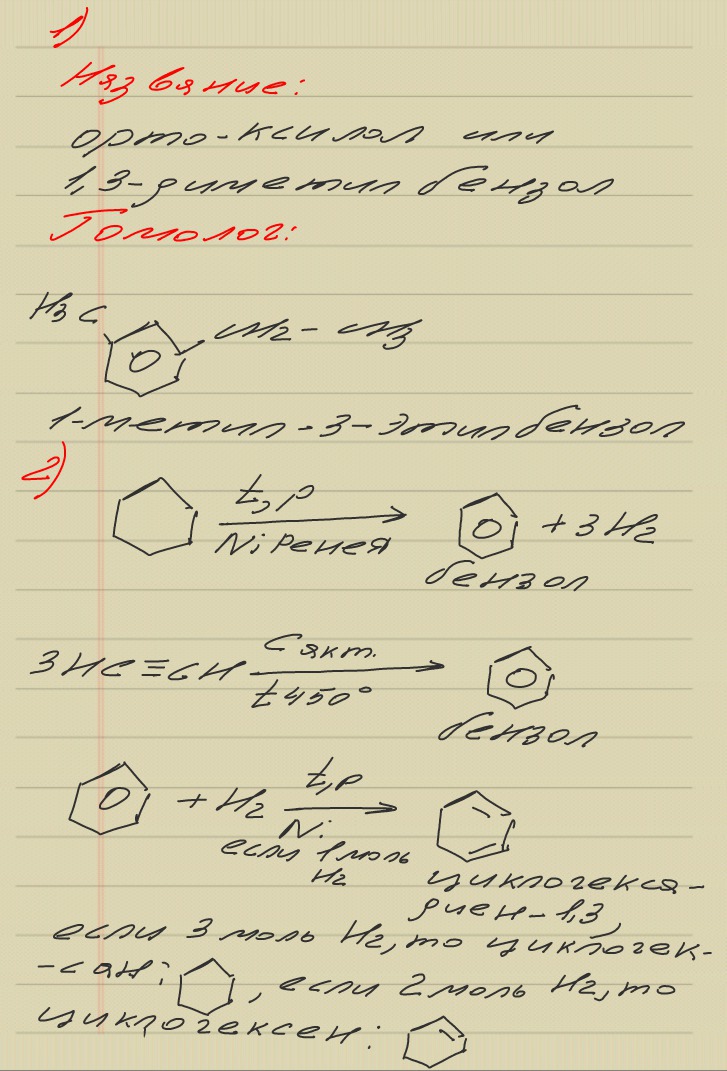 1)
Название:
орто-ксилол или
1,3-диметил бензол
Гомолог:
H3C CH2-CH3
1-метил-3-этилбензол
2)
t, p
Ni Ренея
+ 3H2
бензол
3HC≡CH Cакт.
t 450°
бензол
+ H2 t, p
Ni
если 1 моль
H2
циклогекса-
диен-1,3,
если 3 моль H2, то циклогек-
-сан; , если 2 моль H2, то
циклогексен: